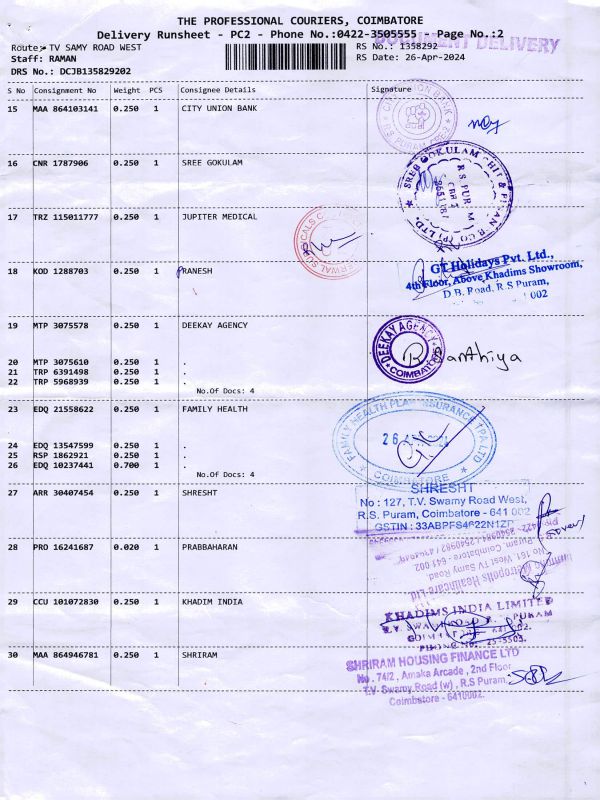 THE PROFESSIONAL COURIERS, COIMBATORE
Delivery Runsheet - PC2 - Phone No.:0422-3505555 - Page No.:2
DOCUMENT DELIVERY
Route: TV SAMY ROAD WEST
RS No.: 1358292
Staff: RAMAN
RS Date: 26-Apr-2024
DRS No.: DCJB135829202
S No Consignment No Weight PCS Consignee Details Signature
15 MAA 864103141 0.250 1 CITY UNION BANK
16 CNR 1787906 0.250 1 SREE GOKULAM
SREE GOKULAM CHIT & FINANCE CO (P) LTD.
R.S. PURAM
17 TRZ 115011777 0.250 1 JUPITER MEDICAL
18 KOD 1288703 0.250 1 PRANESH
GT Holidays Pvt. Ltd.,
4th Floor, Above Khadims Showroom,
D.B. Road, R.S Puram,
002
19 MTP 3075578 0.250 1 DEEKAY AGENCY
DEEKAY AGENCY
COIMBATORE
20 MTP 3075610 0.250 1 .
21 TRP 6391498 0.250 1 .
22 TRP 5968939 0.250 1 .
No.Of Docs: 4
23 EDQ 21558622 0.250 1 FAMILY HEALTH
FAMILY HEALTH PLAN INSURANCE TPA LTD
COIMBATORE
24 EDQ 13547599 0.250 1 .
25 RSP 1862921 0.250 1 .
26 EDQ 10237441 0.700 1 .
No.Of Docs: 4
27 ARR 30407454 0.250 1 SHRESHT
SHRESHT
No : 127, T.V. Swamy Road West,
R.S. Puram, Coimbatore - 641 002
GSTIN : 33ABPFS4622N1ZP
28 PRO 16241687 0.020 1 PRABBAHARAN
Metropolis Healthcare Ltd
No 161, West TV Samy Road,
Puram, Coimbatore - 641 002
29 CCU 101072830 0.250 1 KHADIM INDIA
KHADIMS INDIA LIMITED
30 MAA 864946781 0.250 1 SHRIRAM
SHRIRAM HOUSING FINANCE LTD
No . 74/2 , Amaka Arcade , 2nd Floor
T.V. Swamy Road (w) , R.S Puram,
Coimbatore - 6410002.